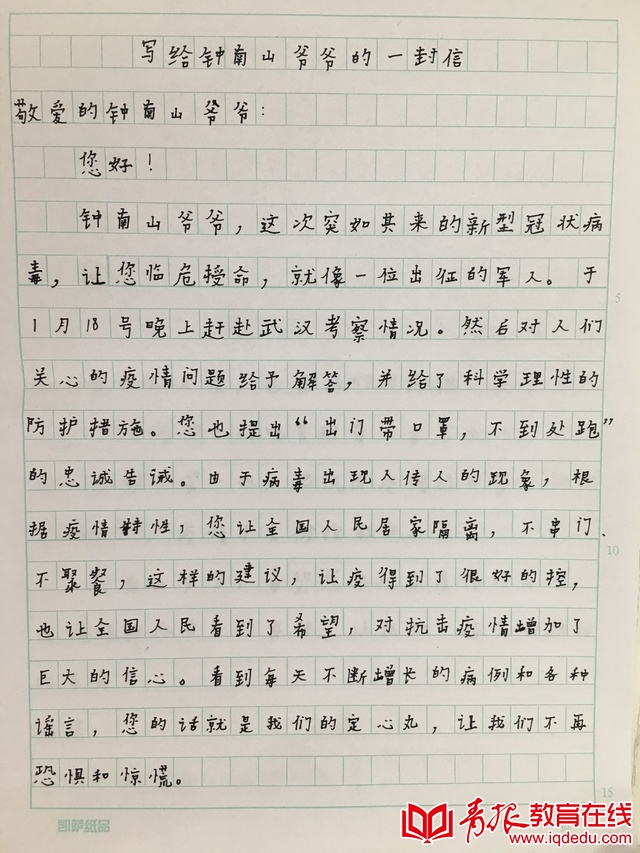 写给钟南山爷爷的一封信
敬爱的钟南山爷爷：
您好！
钟南山爷爷，这次突如其来的新型冠状病
毒，让您临危授命，就像一位出征的军人。于
1月18号晚上赶赴武汉考察情况。然后对人们
关心的疫情问题给予解答，并给了科学理性的
防护措施。您也提出“出门带口罩，不到处跑”
的忠诚告诫。由于病毒出现人传人的现象，根
据疫情特性，您让全国人民居家隔离，不串门、
不聚餐，这样的建议，让疫得到了很好的控，
也让全国人民看到了希望，对抗击疫情增加了
巨大的信心。看到每天不断增长的病例和各种
谣言，您的话就是我们的定心丸，让我们不再
恐惧和惊慌。
5
10
15
凯萨纸品
青报教育在线
www.iqdedu.com